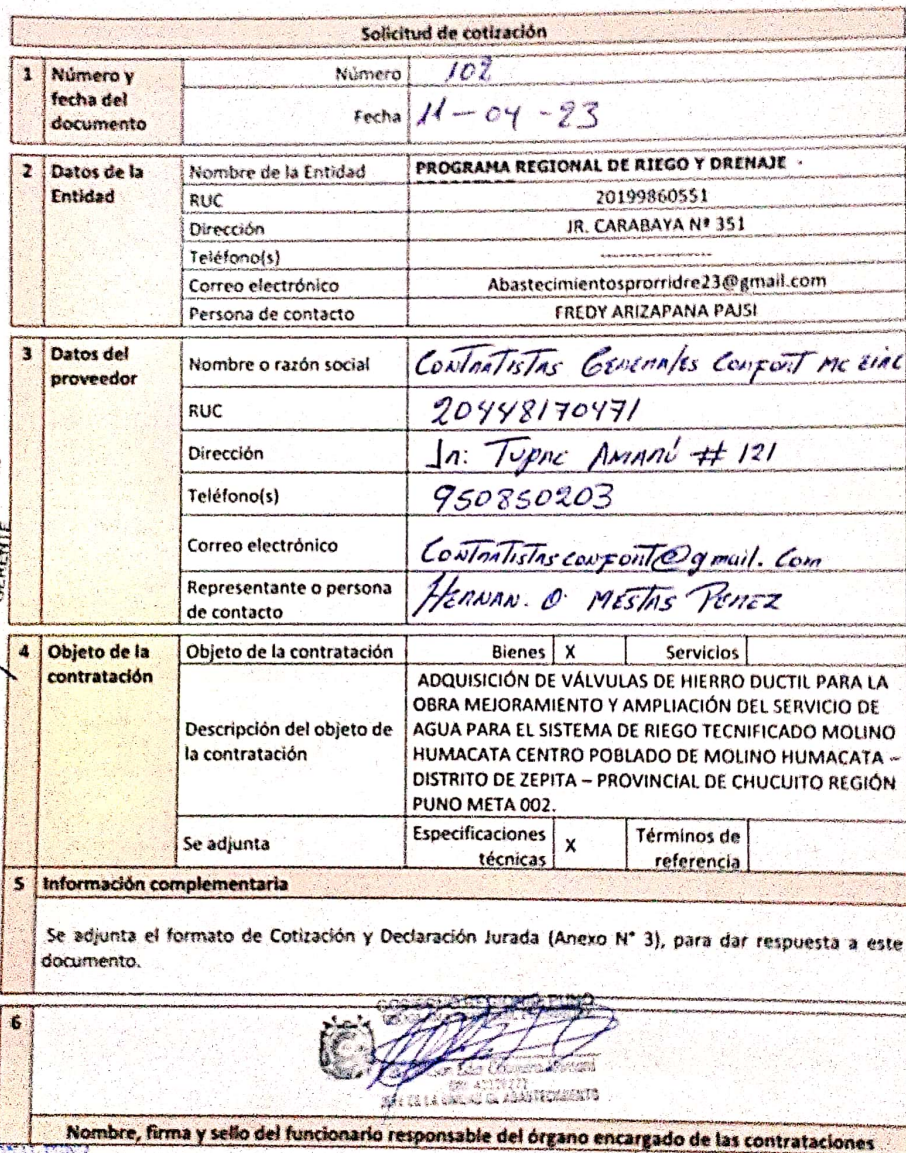 Solicitud de cotización
1 Número y fecha del documento
Número 102
Fecha 11-04-23
2 Datos de la Entidad
Nombre de la Entidad PROGRAMA REGIONAL DE RIEGO Y DRENAJE
RUC 20199860551
Dirección JR. CARABAYA Nº 351
Teléfono(s) --------------------
Correo electrónico Abastecimientosprorridre23@gmail.com
Persona de contacto FREDY ARIZAPANA PAJSI
3 Datos del proveedor
Nombre o razón social Contratistas Generales Confort MC EIRL
RUC 20448170471
Dirección Jr: Tupac Amarú # 121
Teléfono(s) 950850203
Correo electrónico Contratistasconfort@gmail.com
Representante o persona de contacto HERNAN. O. MESTAS PEREZ
4 Objeto de la contratación
Objeto de la contratación Bienes X Servicios
Descripción del objeto de la contratación
ADQUISICIÓN DE VÁLVULAS DE HIERRO DUCTIL PARA LA
OBRA MEJORAMIENTO Y AMPLIACIÓN DEL SERVICIO DE
AGUA PARA EL SISTEMA DE RIEGO TECNIFICADO MOLINO
HUMACATA CENTRO POBLADO DE MOLINO HUMACATA –
DISTRITO DE ZEPITA – PROVINCIAL DE CHUCUITO REGIÓN
PUNO META 002.
Se adjunta Especificaciones técnicas X Términos de referencia
5 Información complementaria
Se adjunta el formato de Cotización y Declaración Jurada (Anexo N° 3), para dar respuesta a este
documento.
6
JEFE DE LA UNIDAD DE ABASTECIMIENTO
Nombre, firma y sello del funcionario responsable del órgano encargado de las contrataciones
GERENTE